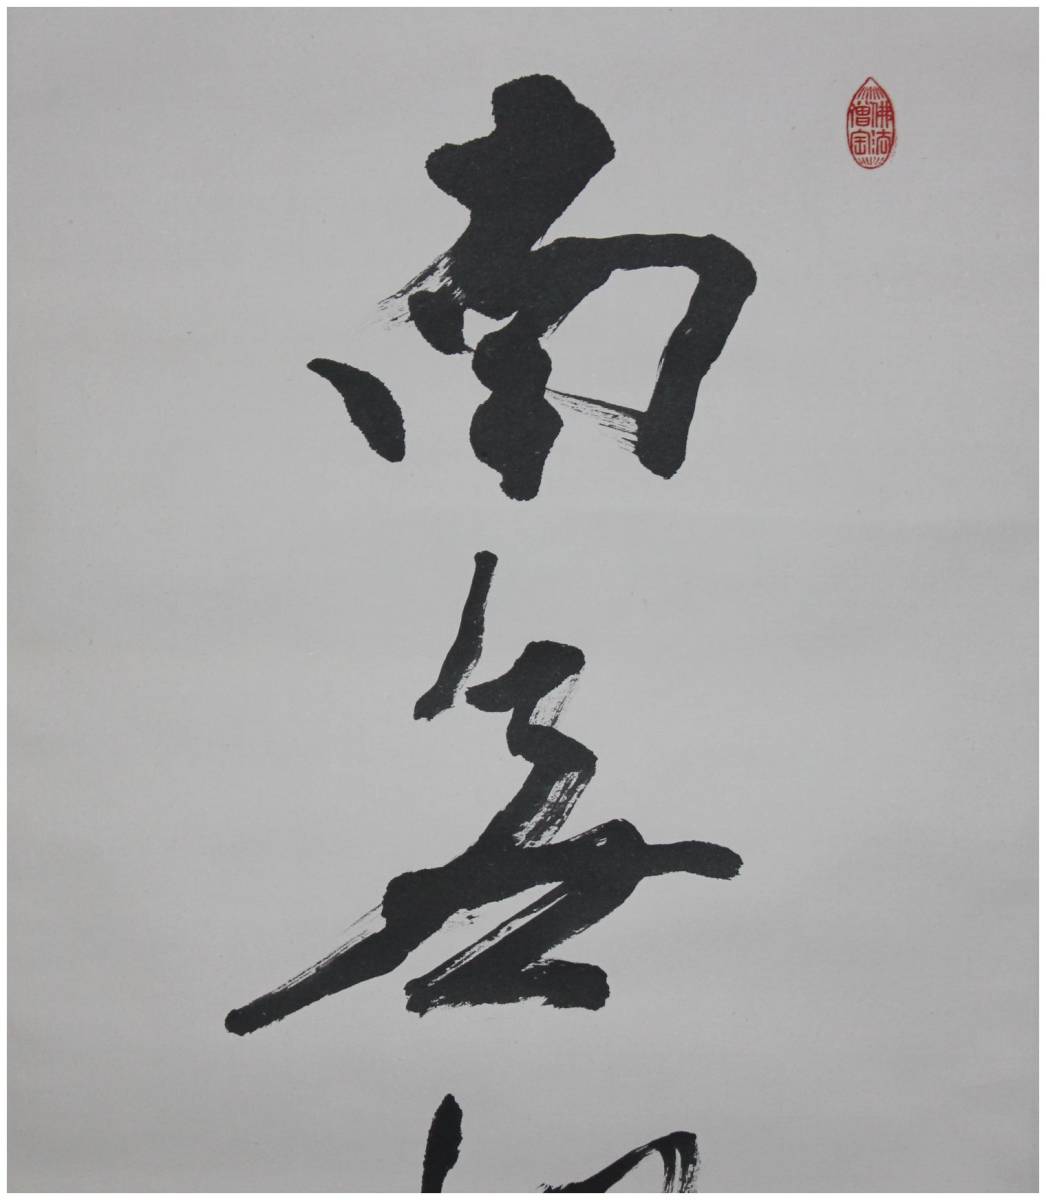 南無
佛法僧宝